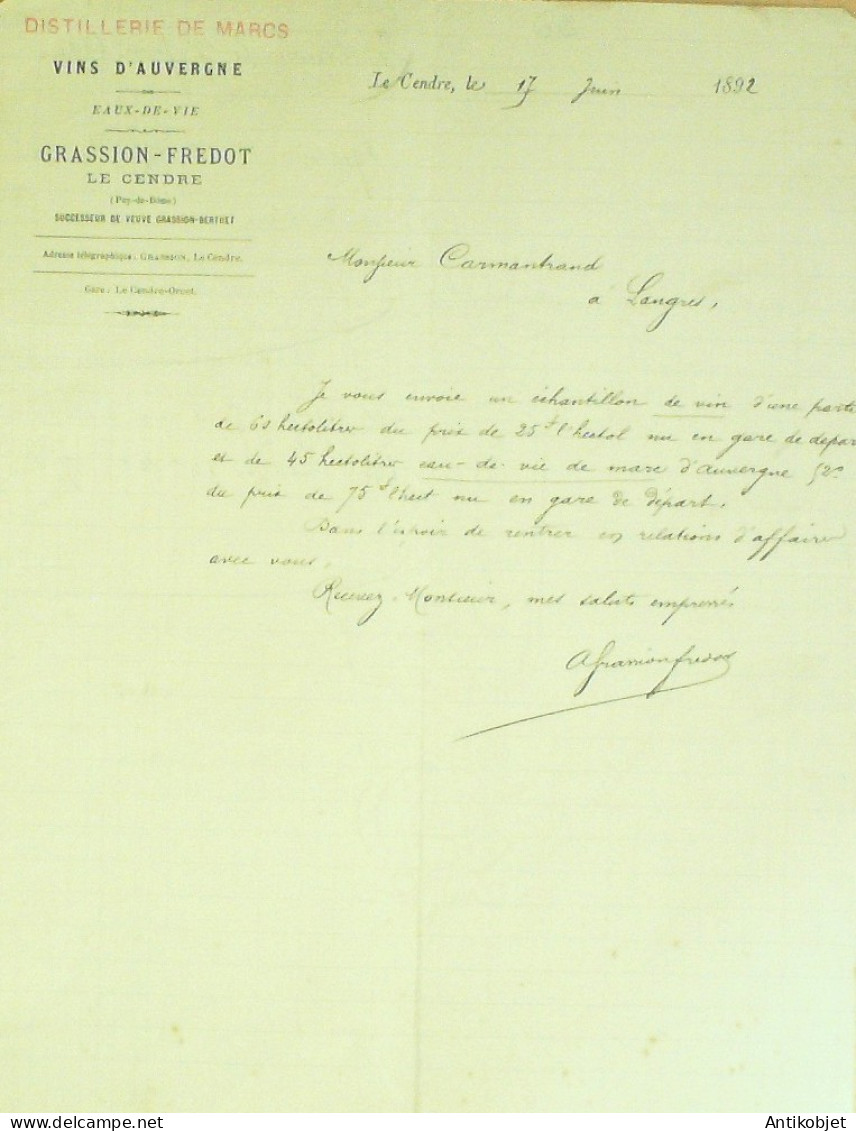 DISTILLERIE DE MARCS
VINS D'AUVERGNE
EAUX-DE-VIE
GRASSION-FREDOT
LE CENDRE
(Puy-de-Dôme)
SUCCESSEUR DE VEUVE GRASSION-BERTHET
Adresse télégraphique: GRASSION, Le Cendre.
Gare: Le Cendre-Orcet.
Le Cendre, le 17 Juin 1892
Monsieur Carmantrand
à Langres,
Je vous envoie un échantillon de vin d'une parti
de 60 hectolitres du prix de 25f l'hectol nu en gare de depar
et de 45 hectolitres eau-de-vie de marc d'Auvergne 52°
du prix de 75f l'hect nu en gare de départ.
Dans l'espoir de rentrer en relations d'affaires
avec vous,
Recevez, Monsieur, mes saluts empressés
AGrassionfredot
Antikobjet